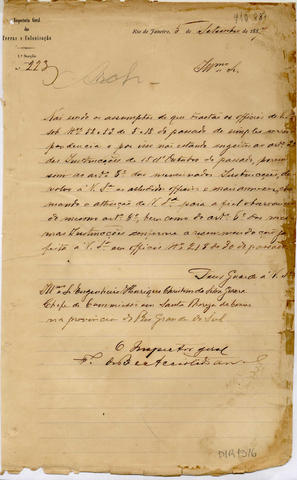 Inspectoria Geral
das
Terras e Colonização
Rio de Janeiro, 5 de Setembro de 188
1ª Secção
N. 223
Illmo Sr.
Não sendo os assumptos de que tractão os officios de
sob Nos 22 e 23 de 5 e 12 do passado de simples corres
pondencia e por isso não estando sujeitos ao artº
das Instrucções de 15 d'Outubro do passado, porem
sim ao artº 5º das mencionadas Instrucções, de
volvo á V. Sª os alludidos officios e
mando a attenção de V. Sª para a fiel observancia
do mesmo artº 5º, bem como do artº 6º das mes
mas Instrucções conforme a recommendação
feita á V. Sª em officio Nº 218 de 30 do passado
Deus Guarde a V. Sª
Illmo Sr Engenheiro Henrique Christino da Silva
Chefe da Commissão em Santo
na provincia do Rio Grande do Sul
O Inspector geral
DIR 1516